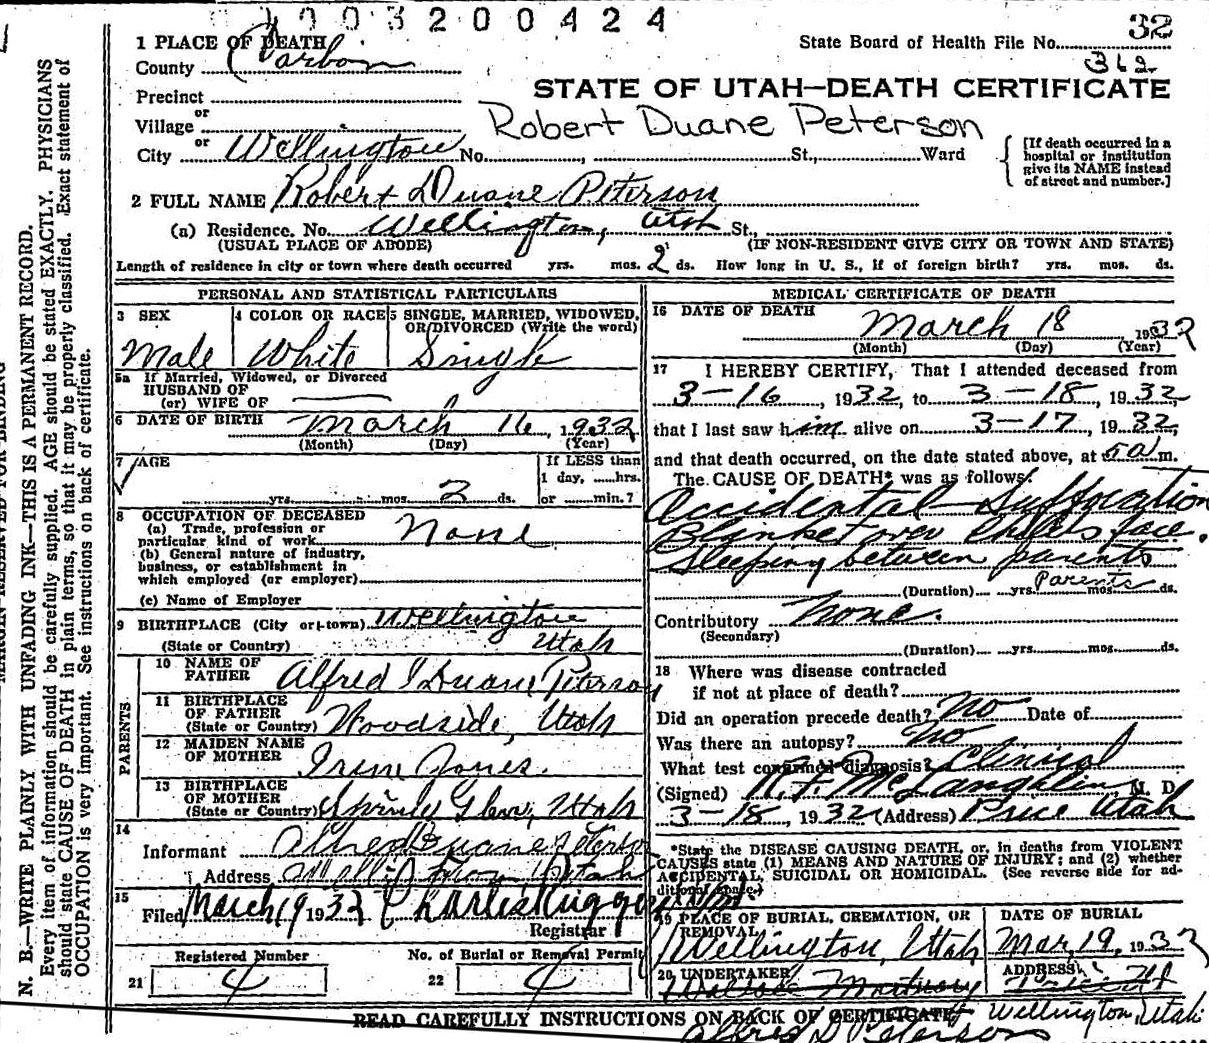 1003200424
32
1 PLACE OF DEATH
State Board of Health File No.
362
County Carbon
STATE OF UTAH—DEATH CERTIFICATE
Precinct
or
Village
Robert Duane Peterson
or
City Wellington No. , St., Ward
[If death occurred in a
hospital or institution
give its NAME instead
of street and number.]
2 FULL NAME Robert Duane Peterson
(a) Residence. No. Wellington, Utah St.,
(USUAL PLACE OF ABODE) (IF NON-RESIDENT GIVE CITY OR TOWN AND STATE)
Length of residence in city or town where death occurred yrs. mos. 2 ds. How long in U. S., if of foreign birth? yrs. mos. ds.
PERSONAL AND STATISTICAL PARTICULARS
3 SEX
Male
4 COLOR OR RACE
White
5 SINGLE, MARRIED, WIDOWED,
OR DIVORCED (Write the word)
Single
5a If Married, Widowed, or Divorced
HUSBAND OF
(or) WIFE OF
6 DATE OF BIRTH March 16, 1932
(Month) (Day) (Year)
7 AGE
yrs. mos. 2 ds.
If LESS than
1 day, ......hrs.
or ......min.?
8 OCCUPATION OF DECEASED
(a) Trade, profession or
particular kind of work None
(b) General nature of industry,
business, or establishment in
which employed (or employer)
(c) Name of Employer
9 BIRTHPLACE (City or town) Wellington
(State or Country) Utah
PARENTS
10 NAME OF
FATHER Alfred Duane Peterson
11 BIRTHPLACE
OF FATHER
(State or Country) Woodside, Utah
12 MAIDEN NAME
OF MOTHER Irene Jones.
13 BIRTHPLACE
OF MOTHER
(State or Country) Utah
14
Informant Alfred Duane Peterson
Address Wellington, Utah
15
Filed March 19 1932
Registrar
Registered Number
21 4
No. of Burial or Removal Permit
22 4
MEDICAL CERTIFICATE OF DEATH
16 DATE OF DEATH
March 18 1932
(Month) (Day) (Year)
17 I HEREBY CERTIFY, That I attended deceased from
3-16, 1932, to 3-18, 1932,
that I last saw him alive on 3-17, 1932,
and that death occurred, on the date stated above, at 5 a m.
The CAUSE OF DEATH* was as follows:
Accidental Suffocation
Blanket over childs face.
Sleeping between parents
Parents
(Duration) yrs. mos. ds.
Contributory None.
(Secondary)
(Duration) yrs. mos. ds.
18 Where was disease contracted
if not at place of death?
Did an operation precede death? No Date of
Was there an autopsy? No
What test confirmed diagnosis? Clinical
(Signed) McLaughlin, M. D.
3-18, 1932 (Address) Price Utah
*State the DISEASE CAUSING DEATH, or, in deaths from VIOLENT
CAUSES state (1) MEANS AND NATURE OF INJURY; and (2) whether
ACCIDENTAL, SUICIDAL OR HOMICIDAL. (See reverse side for ad-
ditional space.)
19 PLACE OF BURIAL, CREMATION, OR
REMOVAL
Wellington, Utah
DATE OF BURIAL
Mar, 19, 1932
20 UNDERTAKER
Wallace Mortuary
ADDRESS
Wellington, Utah
READ CAREFULLY INSTRUCTIONS ON BACK OF CERTIFICATE
Alfred D Peterson
N. B.—WRITE PLAINLY WITH UNFADING INK—THIS IS A PERMANENT RECORD.
Every item of information should be carefully supplied. AGE should be stated EXACTLY. PHYSICIANS
should state CAUSE OF DEATH in plain terms, so that it may be properly classified. Exact statement of
OCCUPATION is very important. See instructions on back of certificate.